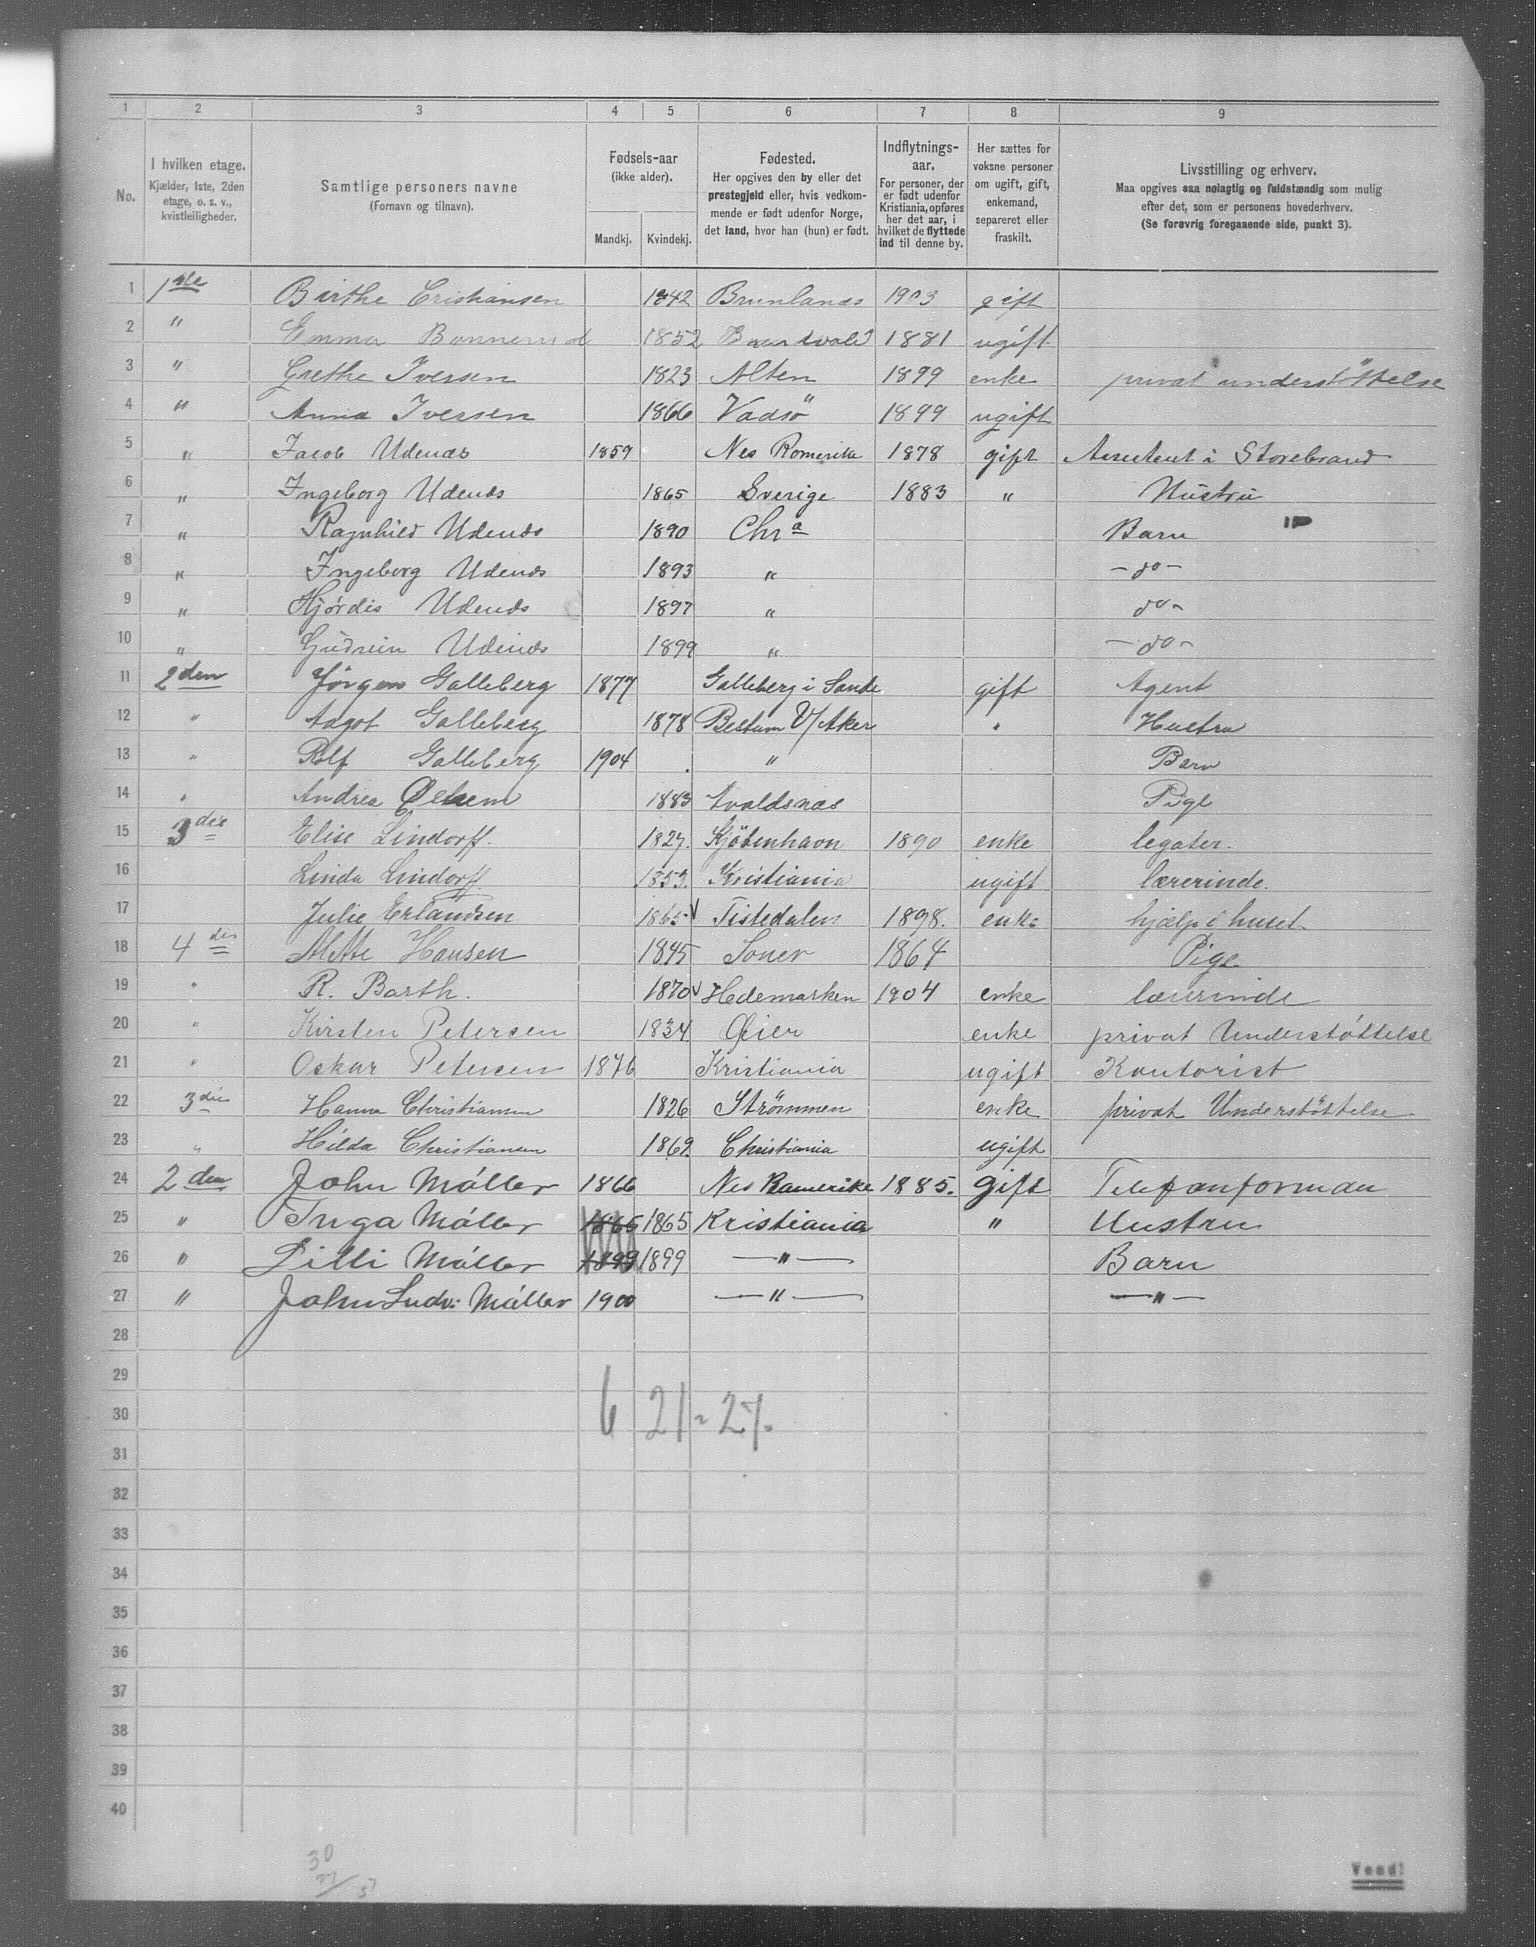 1 2 3 4 5 6 7 8 9
No. I hvilken etage. Kjælder, 1ste, 2den etage, o. s. v., kvistleiligheder. Samtlige personers navne (Fornavn og tilnavn). Fødsels-aar (ikke alder). Mandkj. Kvindekj. Fødested. Her opgives den by eller det prestegjeld eller, hvis vedkommende er født udenfor Norge, det land, hvor han (hun) er født. Indflytnings-aar. For personer, der er født udenfor Kristiania, opføres her det aar, i hvilket de flyttede ind til denne by. Her sættes for voksne personer om ugift, gift, enkemand, separeret eller fraskilt. Livsstilling og erhverv. Maa opgives saa nøiagtig og fuldstændig som mulig efter det, som er personens hovederhverv. (Se forøvrig foregaaende side, punkt 3).
1 1ste Birthe Cristiansen 1842 Brunlanas 1903 gift
2 " Emma 1852 1881 ugift
3 " Grethe Iversen 1823 Alten 1899 enke privat understøttelse
4 " Anna Iversen 1866 Vadsö 1899 ugift
5 " Jacob Udenæs 1859 Nes Romerike 1878 gift Assistent i Storebrand
6 " Ingeborg Udenæs 1865 Sverige 1883 " Hustru
7 " Ragnhild Udenæs 1890 Chr a Barn
8 " Ingeborg Udenæs 1893 " - do -
9 " Hjørdis Udenæs 1897 " do -
10 " Gudrun Udenæs 1899 " - do -
11 2den Jørgen Galleberg 1877 Galleberg i Sande gift Agent
12 " Aagot Galleberg 1878 Bestum V/Aker " Hustru
13 " Rolf Galleberg 1904 " Barn
14 " Andrea 1883 Avaldsnæs Pige
15 3die Elise Lindorff. 1827. Kjöbenhavn 1890 enke legater.
16 Linda Lindorff 1853. Kristiania ugift lærerinde.
17 Julie Erlandsen 1865 V Tistedalen 1898. enke hjælp i huset
18 4de Mette Hansen 1845 Soner 1864 Pige
19 " R. Barth. 1870 V Hedemarken 1904 enke lærerinde
20 " Kirsten Petersen 1834 Øier enke privat Understøttelse
21 " Oskar Petersen 1876 Kristiania ugift Kontorist
22 3die Hanna Christiansen 1826 Strömmen enke privat Understøttelse
23 " Hilda Christiansen 1869. Christiania ugift
24 2den John Møller 1866 Nes Romerike 1885. gift Telefonformand
25 " Inga Møller 1865 1865 Kristiania " Hustru
26 " Lilli Møller 1899 1899 — " — Barn
27 " John Ludv: Møller 1900 — " — — " —
28
29
30 6 21 - 27.
31
32
33
34
35
36
37
38
39
40
30
Vend!